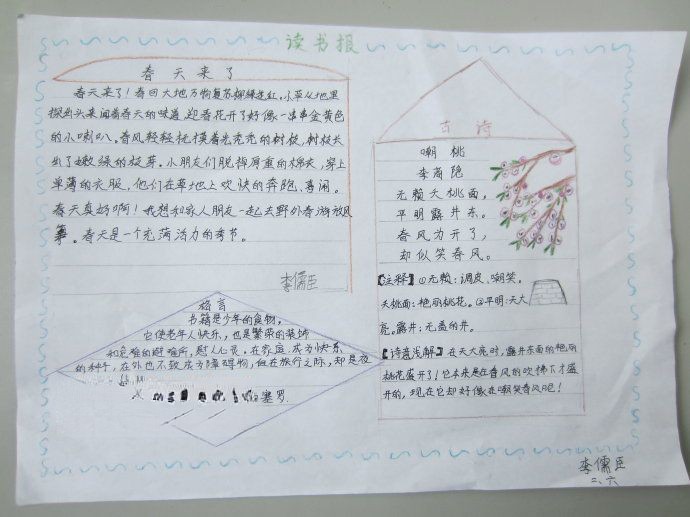 读书报
春天来了
春天来了!春回大地万物复苏柳绿花红。小草从地里
探出头来闻着春天的味道,迎春花开了好像一串串金黄色
的小喇叭。春风轻轻抚摸着光秃秃的树枝,树枝长
出了嫩绿的枝芽。小朋友们脱掉厚重的棉衣,穿上
单薄的衣服,他们在草地上欢快的奔跑、喜闹。
春天真好啊!我想和家人朋友一起去野外春游放风
筝。春天是一个充满活力的季节。
李儒臣
格言
书籍是少年的食物,
它使老年人快乐,也是繁荣的装饰
和危难的避难所,慰人心灵。在家庭成为快乐
的种子,在外也不致成为障碍物,但在旅行之际,却是夜
塞罗
古诗
嘲桃
李商隐
无赖夭桃面,
平明露井东。
春风为开了,
却似笑春风。
【注释】①无赖:调皮、嘲笑。
夭桃面:艳丽桃花。②平明:天大
亮。露井:无盖的井。
【诗意浅解】在天大亮时,露井东面的艳丽
桃花盛开了!它本来是在春风的吹拂下才盛
开的,现在它却好像在嘲笑春风吧!
李儒臣
二、六